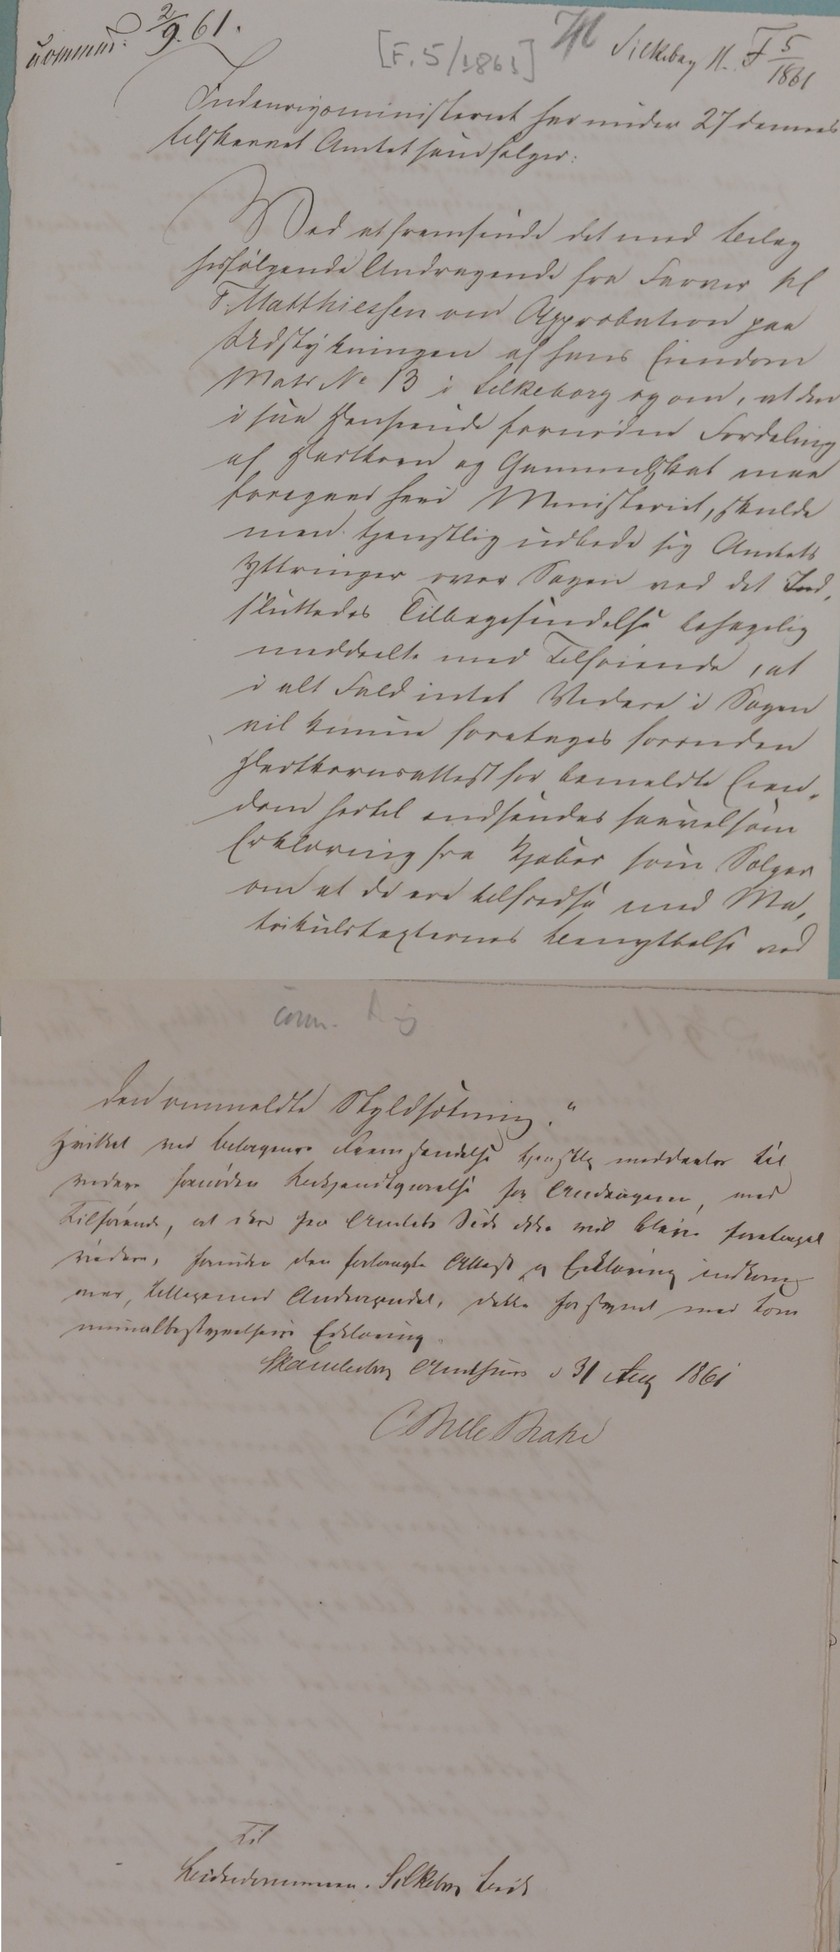 2/9. 61.
[F. 5/1861]
Silkeborg F 5/1861
Indenrigsministeriet har under 27 dennes
tilskrevet Amtet saaledes:
Ved at fremsende det med Bilag
hosfølgende Andragende fra Farver
F. Matthiessen om Approbation paa
Udstykningen af hans Eiendom
Matr No 13 i Silkeborg og om, at den
i saa Henseende fornødne Fordeling
af Hartkorn og Gammelskat maa
foregaae heri Ministeriet, skulde
man tjenstlig udbede sig Amtets
Yttringer over Sagen ved det Ind-
sluttedes Tilbagesendelse behagelig
meddeelte med Tilføiende, at
i alt Fald intet Videre i Sagen
vil kunne foretages forinden
Hartkornsattest for bemeldte Eien-
dom hertil indsendes saavelsom
Erklæring fra Kjøber som Sælger
om at de ere tilfredse med Ma-
trikulstaxternes Benyttelse ved
den ommeldte Skyldsætning."
Hvilket ved Bilagenes Fremsendelse tjenstlig meddeles til
videre fornøden Bekjendtgjørelse for Andrageren, med
Tilføiende, at der fra Amtets Side ikke vil blive foretaget
videre, forinden den forlangte Attest og Erklæring indkom-
mer, tilligemed Andragendet, dette forsynet med Com-
munalbestyrelsens Erklæring.
Skanderborg Amthuus d 31 Aug 1861
C Bille Brahe
Til
Birkedommeren. Silkeborg Birk